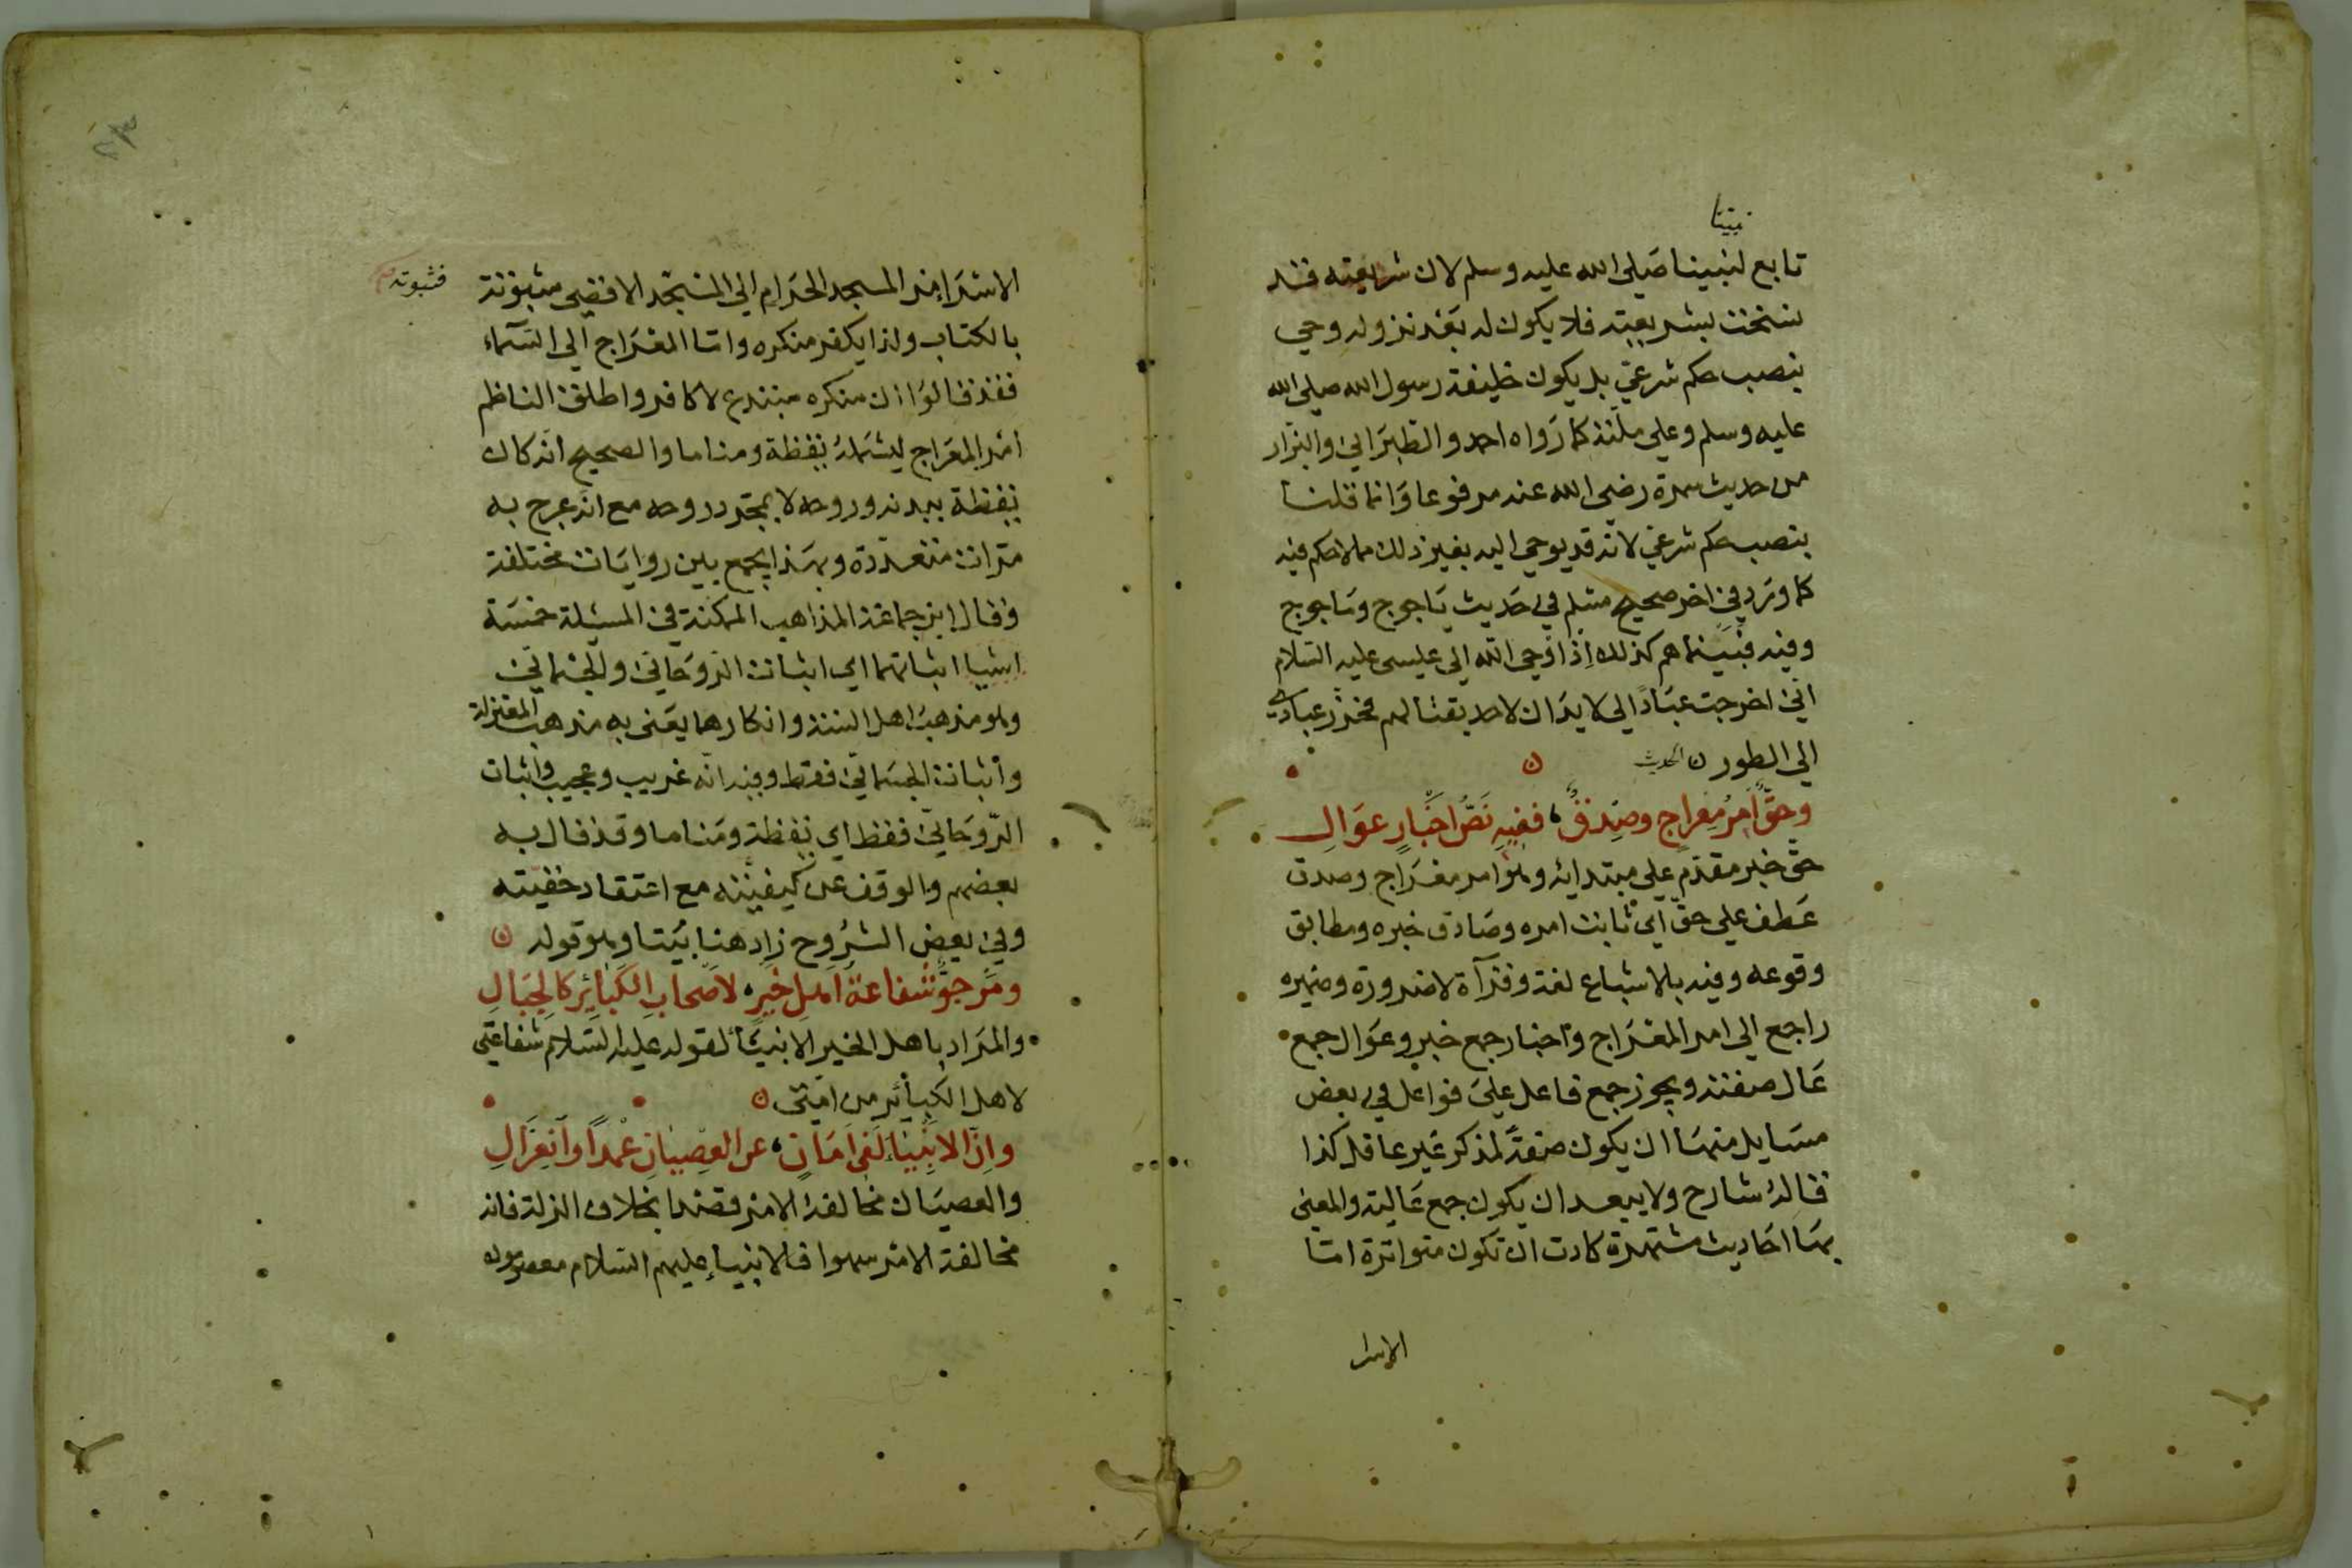 نبينا
تابع لنبينا صلى الله عليه وسلم لان شريعته قد
نسخت بشريعته فلا يكون له بعد نزوله وحي
بنصب حكم شرعي بل يكون خليفة رسول الله صلى الله
عليه وسلم وعلى ملته كما رواه احمد والطبراني والبزار
من حديث سمرة رضى الله عنه مرفوعا وانما قلنا
بنصب حكم شرعي لانه قد يوحى اليه بغير ذلك مما لا حكم فيه
كما ورد في اخر صحيح مسلم في حديث ياجوج وماجوج
وفيه فبينما هم كذلك اذ اوحى الله الى عيسى عليه السلام
اني اخرجت عبادًا لي لا يدان لاحد بقتالهم فحرّز عبادي
الى الطور ن الحديث ن
وحقٌّ امرُ مِعراجٍ وصِدقٌ، ففيهِ نَصُّ اخبارٍ عَوَالِ
حق خبر مقدم على مبتدائه وهو امر معراج وصدق
عطف على حق اي ثابت امره وصادق خبره ومطابق
وقوعه وفيه بالاشباع لغة وقرآة لا ضرورة وضميره
راجع الى امر المعراج واخبار جمع خبر وعوال جمع
عال صفته ويجوز جمع فاعل على فواعل في بعض
مسايل منها ان يكون صفةً لمذكر غير عاقل كذا
قاله شارح ولا يبعد ان يكون جمع عالية والمعنى
بها احاديث مشتهرة كادت ان تكون متواترة امّا
الاسرا
الاسراء من المسجد الحرام الى المسجد الاقصى مثبوتة
فثبوته
بالكتاب ولذا يكفر منكره وامّا المعراج الى السّمآء
فقد قالوا ان منكره مبتدع لا كافر واطلق الناظم
امر المعراج ليشمله يقظة ومناما والصحيح انه كان
يقظة ببدنه وروحه لا بمجرد روحه مع انه عرج به
مرّات متعددة وبهذا يجمع بين روايات مختلفة
وقال ابن جماعة المذاهب الممكنة في المسئلة خمسة
اشيا اثباتهما اي اثبات الرّوحاني والجسماني
وهو مذهب اهل السنة وانكارهما يعنى به مذهب المعتزلة
واثبات الجسماني فقط وفيه انّه غريب وعجيب واثبات
الرّوحاني فقط اي يقظة ومناما وقد قال به
بعضهم والوقف عن كيفيته مع اعتقاد حقيته
وفي بعض الشروح زاد هنا بيتا وهو قوله ن
ومرجوٌّ شفاعةُ اهلِ خيرٍ، لاصحابِ الكبائرِ كالجبالِ
والمراد باهل الخير الانبيآء لقوله عليه السلام شفاعتي
لاهل الكبائر من امتي ن
وانّ الانبياء لفي امانٍ، عن العصيانِ عمدًا وانعزالِ
والعصيان مخالفة الامر قصدا بخلاف الزلة فانه
مخالفة الامر سهوا فالانبياء عليهم السلام معصومون